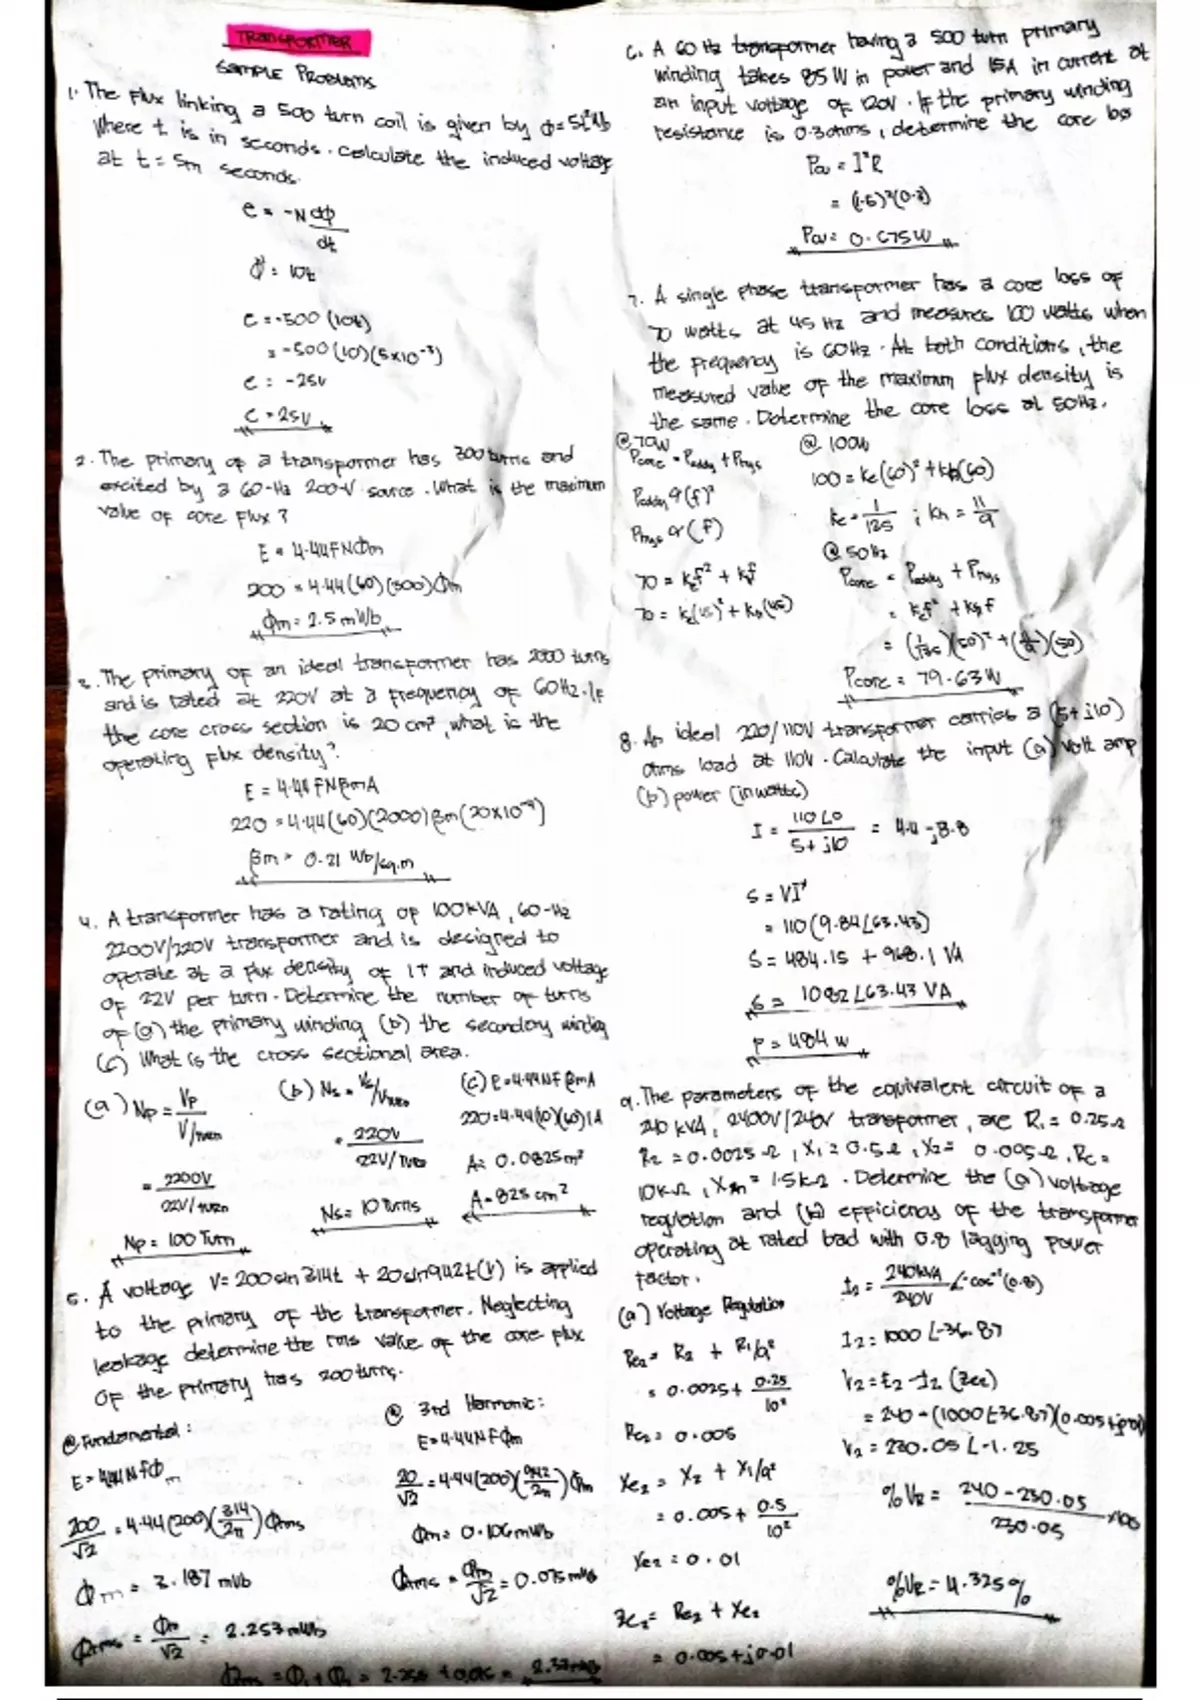 TRANSFORMER
SAMPLE PROBLEMS
1. The flux linking a 500 turn coil is given by ϕ = 5t² Wb
where t is in seconds. Calculate the induced voltage
at t = 5m seconds.
e = -N dϕ/dt
ϕ' = 10t
e = -500 (10t)
= -500 (10)(5x10⁻³)
e = -25V
e = 25V
2. The primary of a transformer has 300 turns and
excited by a 60-Hz 200-V source. What is the maximum
value of core flux?
E = 4.44FNϕm
200 = 4.44(60)(300)ϕm
ϕm = 2.5 mWb
3. The primary of an ideal transformer has 2000 turns
and is rated at 220V at a frequency of 60Hz. If
the core cross section is 20 cm², what is the
operating flux density?
E = 4.44 FNβmA
220 = 4.44(60)(2000)βm(20x10⁻⁴)
βm = 0.21 Wb/sq.m
4. A transformer has a rating of 100kVA, 60-Hz
2200V/220V transformer and is designed to
operate at a flux density of 1T and induced voltage
of 22V per turn. Determine the number of turns
of (a) the primary winding (b) the secondary winding
(c) What is the cross sectional area.
(a) Np = Vp / V/turn
= 2200V / 22V/turn
Np = 100 Turn
(b) Ns = Vs / V/turn
= 220V / 22V/turn
Ns = 10 Turns
(c) E = 4.44NFβmA
220 = 4.44(10)(60)1A
A = 0.0825m²
A = 825 cm²
5. A voltage V = 200sin314t + 20sin942t(V) is applied
to the primary of the transformer. Neglecting
leakage determine the rms value of the core flux
of the primary has 200 turns.
@ Fundamental:
E = 4.44Nfϕm
200/√2 = 4.44(200)(314/2π)ϕrms
ϕm = 3.187 mWb
ϕrms = ϕm/√2 = 2.253 mWb
@ 3rd Harmonic:
E = 4.44NFϕm
20/√2 = 4.44(200)(942/2π)ϕm
ϕm = 0.106mWb
ϕrms = ϕm/√2 = 0.075mWb
6. A 60 Hz transformer having a 500 turn primary
winding takes 85 W in power and 1.5A in current at
an input voltage of 120V. If the primary winding
resistance is 0.3 ohms, determine the core loss
Pcu = I²R
= (1.5)²(0.3)
Pcu = 0.675W
7. A single phase transformer has a core loss of
70 watts at 45 Hz and measures 100 watts when
the frequency is 60Hz. At both conditions, the
measured value of the maximum flux density is
the same. Determine the core loss at 50Hz.
@ 70W
Pcore = Peddy + Phys
Peddy α (f)²
Phys α (f)
70 = Kef² + Khf
70 = Ke(45)² + Kh(45)
@ 100W
100 = Ke(60)² + Kh(60)
Ke = 1/135 ; Kh = 11/9
@ 50Hz
Pcore = Peddy + Phys
= Kef² + Khf
= (1/135)(50)² + (11/9)(50)
Pcore = 79.63W
8. An ideal 220/110V transformer carries a (5+j10)
ohms load at 110V. Calculate the input (a) volt amp
(b) power (in watts)
I = 110∠0 / 5+j10 = 4.4 - j8.8
S = VI*
= 110(9.84∠63.43)
S = 484.15 + 968.1 VA
S = 1082∠63.43 VA
P = 484 W
9. The parameters of the equivalent circuit of a
240 kVA, 2400V/240V transformer, are R₁ = 0.25Ω
R₂ = 0.0025 Ω, X₁ = 0.5Ω, X₂ = 0.005Ω, Rc =
10kΩ, Xm = 1.5kΩ. Determine the (a) voltage
regulation and (b) efficiency of the transformer
operating at rated load with 0.8 lagging power
factor.
(a) Voltage Regulation
Re₂ = R₂ + R₁/a²
= 0.0025 + 0.25/10²
Re₂ = 0.005
Xe₂ = X₂ + X₁/a²
= 0.005 + 0.5/10²
Xe₂ = 0.01
Ze₂ = Re₂ + Xe₂
= 0.005+j0.01
I₂ = 240kVA/240V ∠-cos⁻¹(0.8)
I₂ = 1000 ∠-36.87
V₂ = E₂ - I₂ (Ze₂)
V₂ = 230.05 ∠-1.25
%VR = 240 - 230.05 / 230.05 x100
%VR = 4.325%